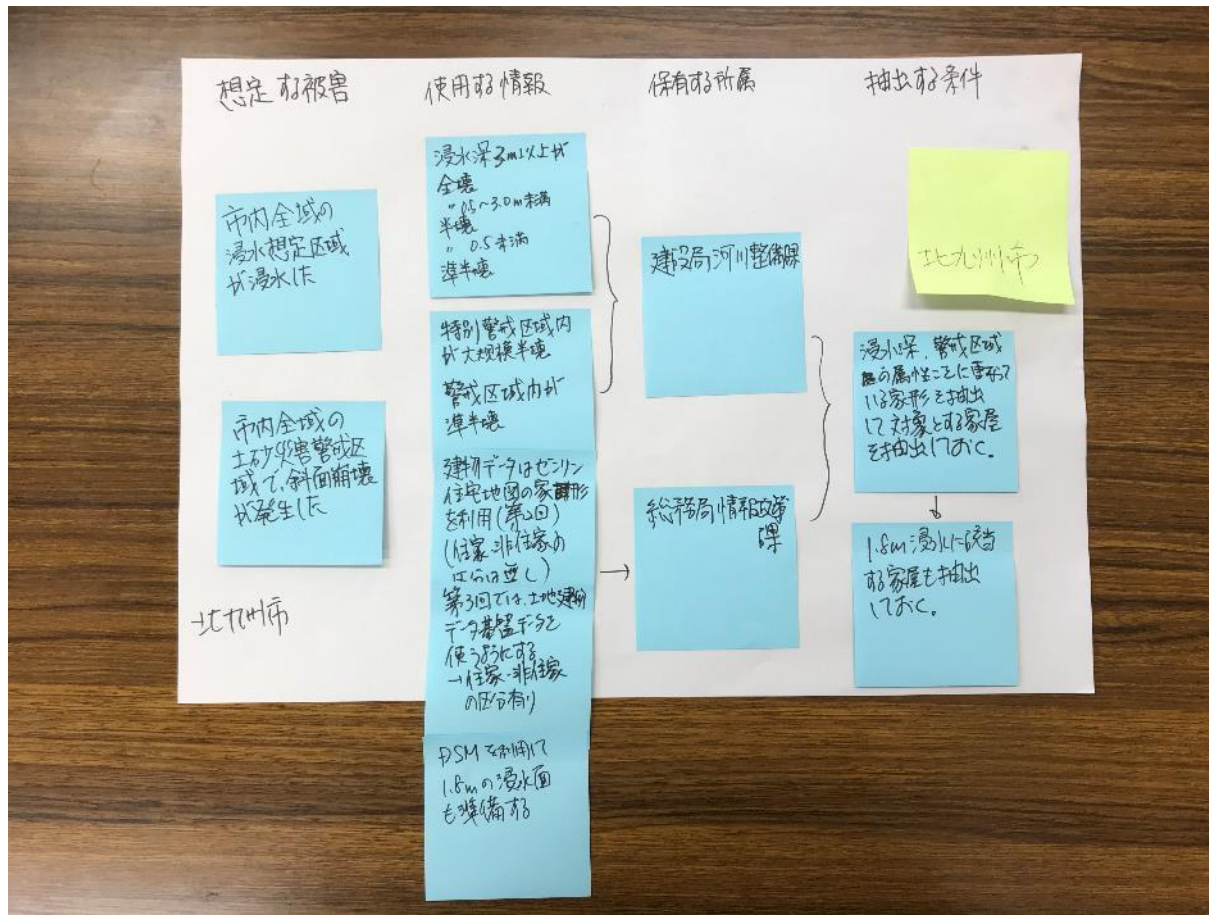 想定する被害
使用する情報
保有する所属
抽出する条件
市内全域の
浸水想定区域
が浸水した
市内全域の
土砂災害警戒区
域で、斜面崩壊
が発生した
北九州市
浸水深3m以上が
全壊
〃 0.5~3.0m未満
半壊
〃 0.5未満
準半壊
特別警戒区域内
が大規模半壊
警戒区域内が
準半壊
建物データはゼンリン
住宅地図の家形
を利用(第2回)
(住家・非住家の
区分は無し)
第3回では、土地建物
データ基盤データを
使うようにする
→住家・非住家
の区分有り
DSMを利用して
1.8mの浸水面
も準備する
建設局河川整備課
総務局情報政策
課
北九州市
浸水深、警戒区域
の属性ごとに重なって
いる家形を抽出
して対象とする家屋
を抽出しておく。
1.8m浸水に該当
する家屋も抽出
しておく。